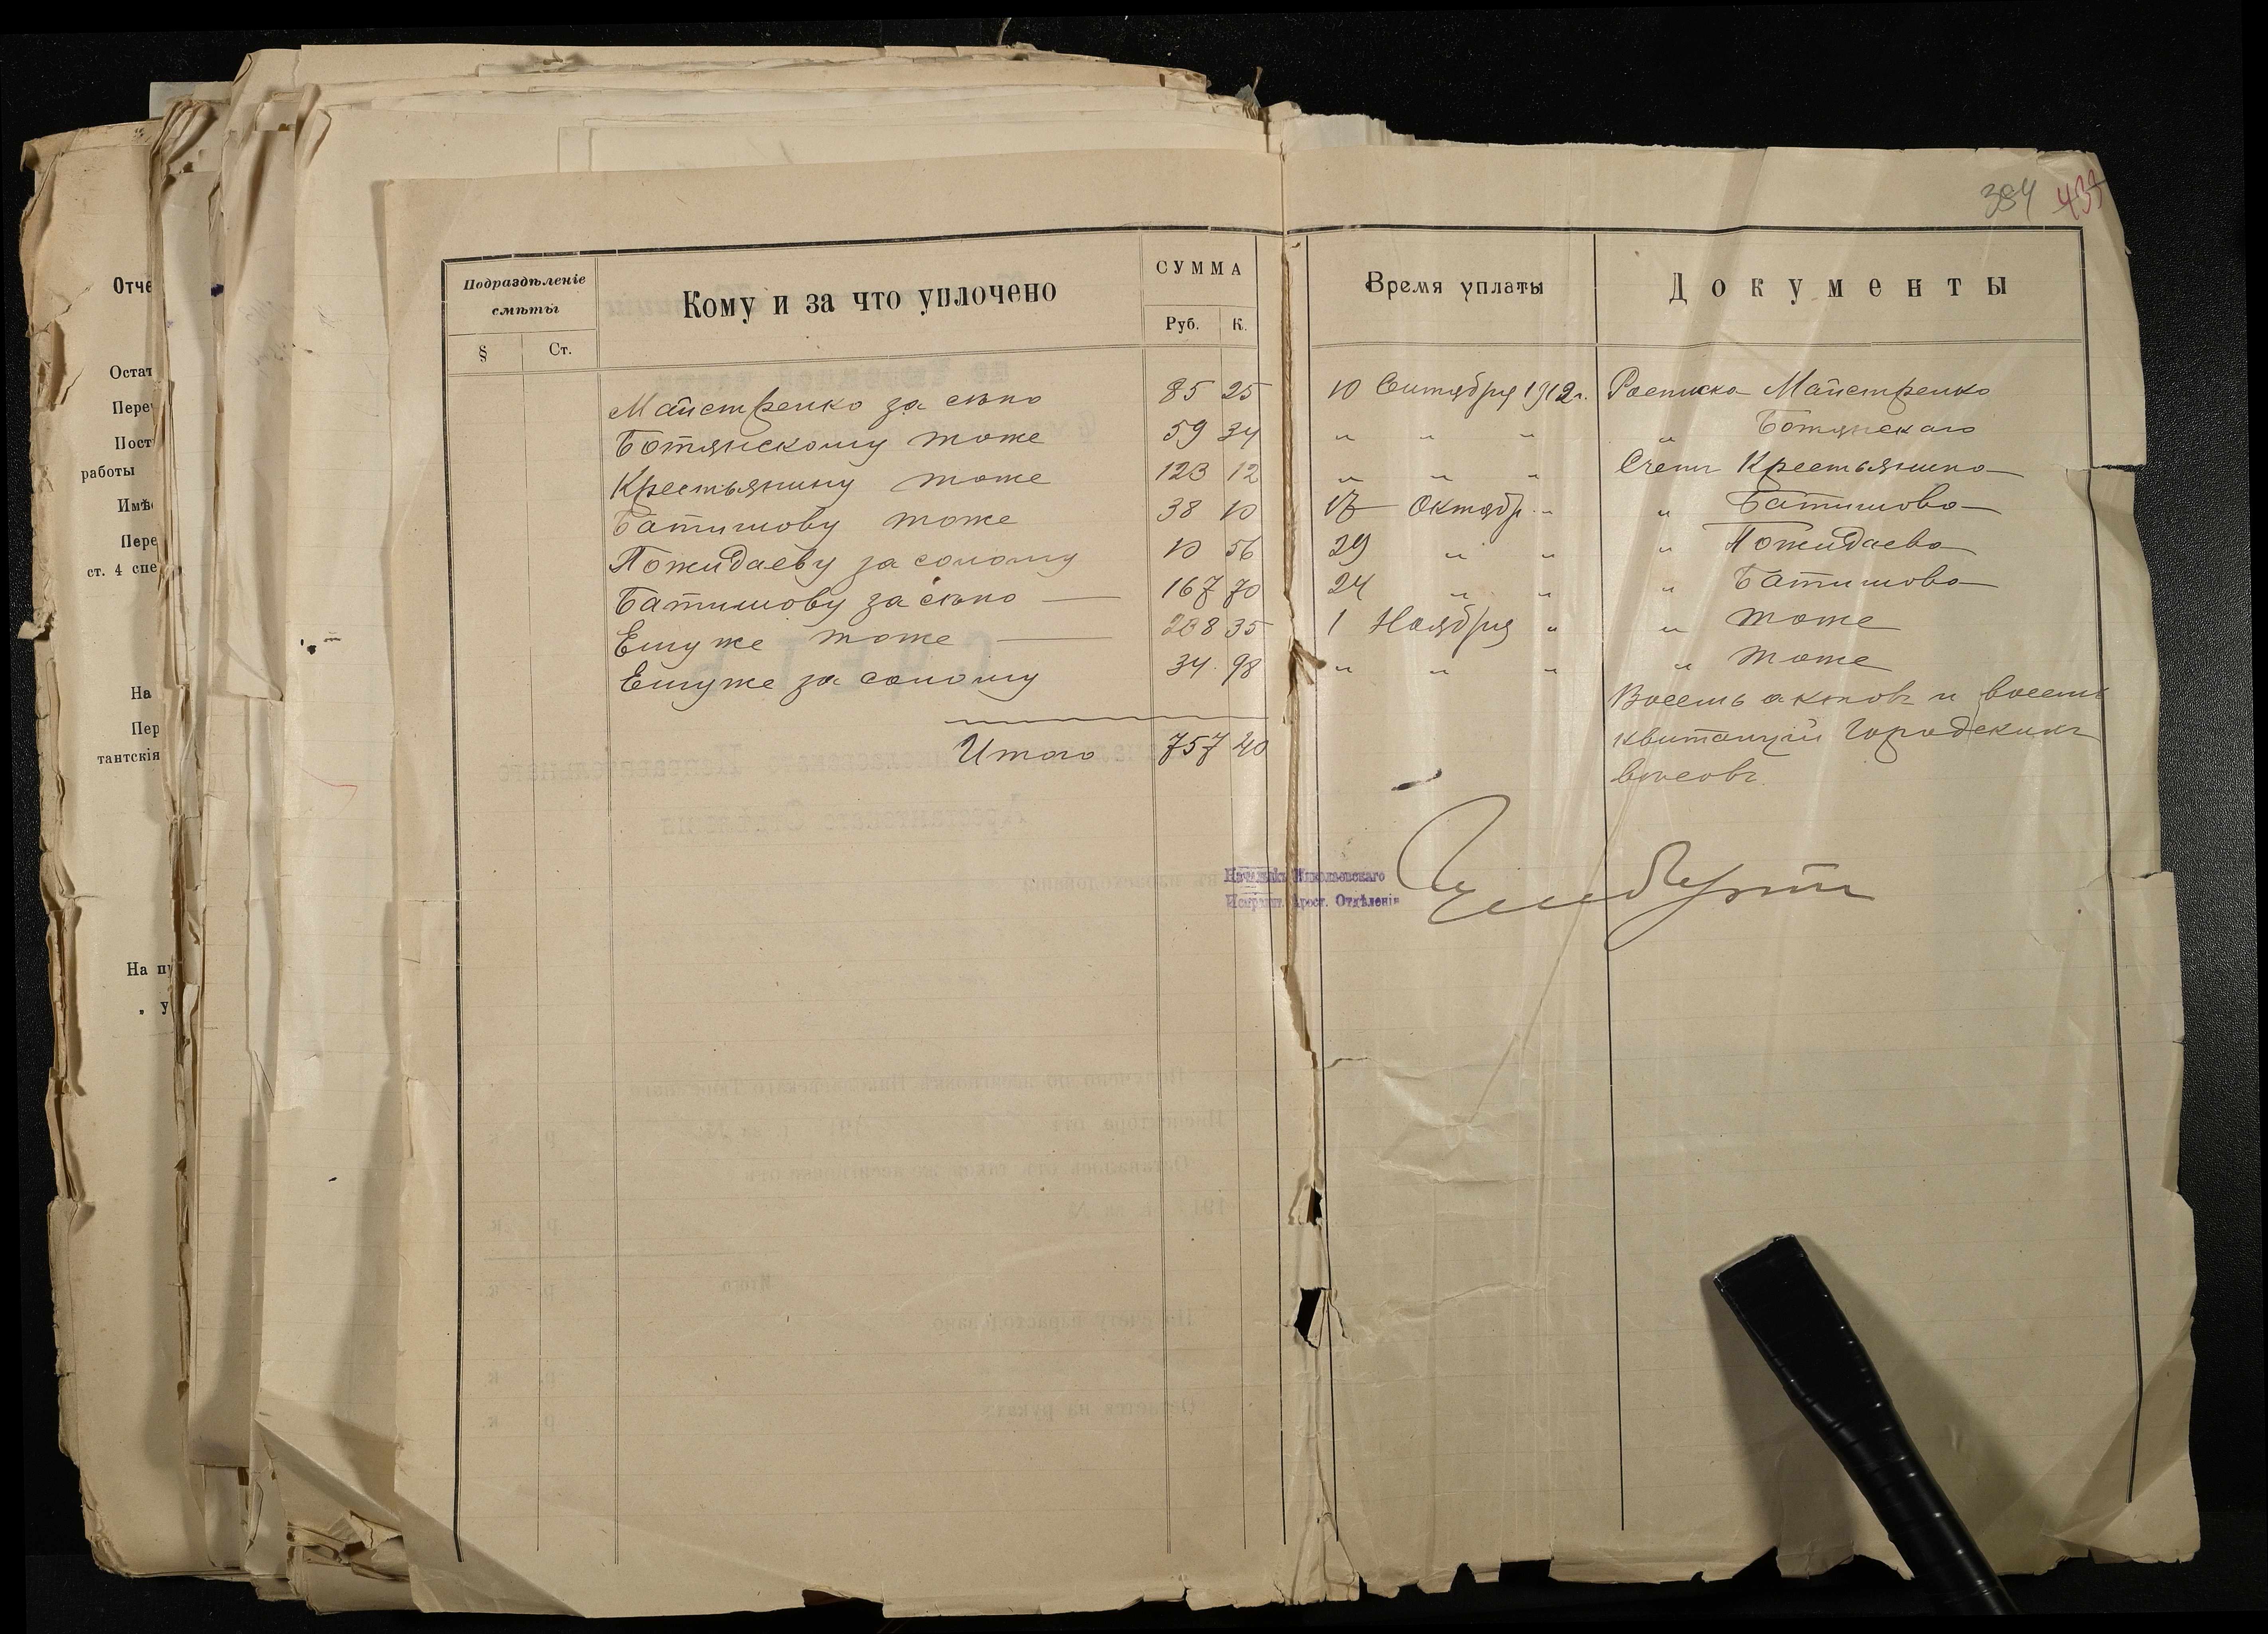 Отче
Остат
Переч
Пост
работы
Имѣ
Пере
ст. 4 спе
На
Пер
тантскія
На пу
„ у
384 433
Подраздѣленіе смѣты
§ Ст.
Кому и за что уплочено
СУММА
Руб. К.
Время уплаты
Документы
Майстренко за сѣно 85 25 10 Сентября 1912 г. Росписка Майстренко
Ботянскому тоже 59 34 " " " " Ботянскаго
Крестьянину тоже 123 12 " " " Счетъ Крестьянина
Батишову тоже 38 10 17 Октября " " Батишова
Пожидаеву за солому 10 56 29 " " " Пожидаева
Батишову за сѣно 167 70 24 " " " Батишова
Ему же тоже 238 35 1 Ноября " " тоже
Ему же за солому 34 98 " " " " тоже
Итого 757 40
Восемь актовъ и восемь
квитанцій Городскихъ
вѣсовъ.
Начальникъ Николаевскаго
Исправит. Арест. Отдѣленія